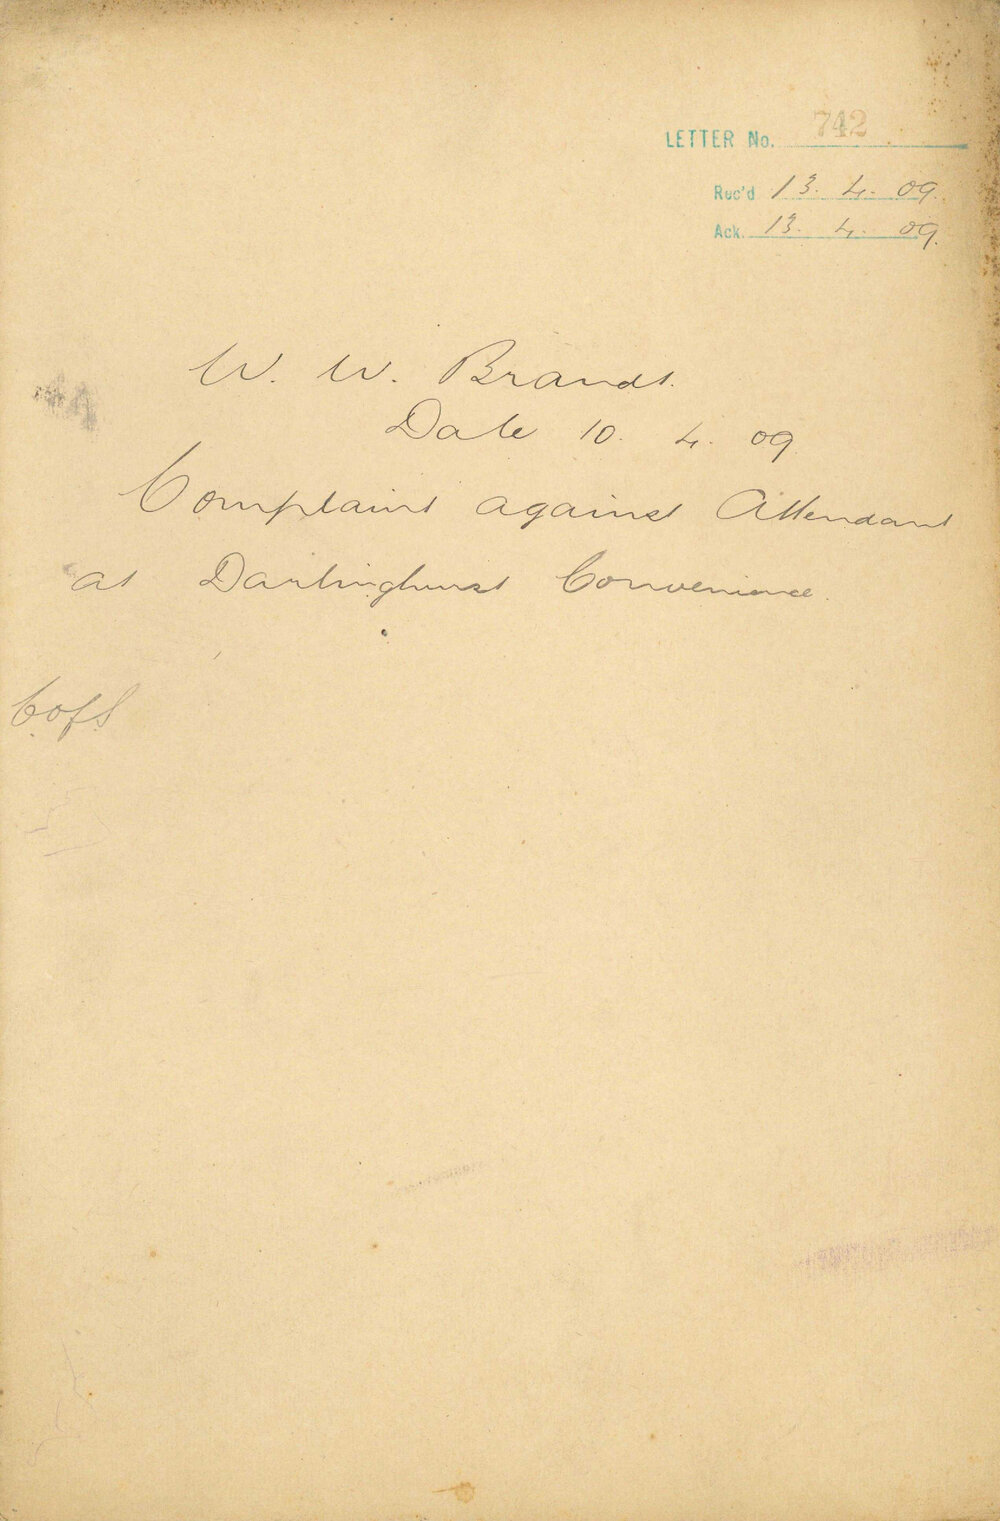 LETTER No. 742
Rec'd 13. 4. 09.
Ack. 13. 4. 09.
W. W. Brandt.
Date 10. 4. 09
Complaint against Attendant
at Darlinghurst Convenience.
C of S